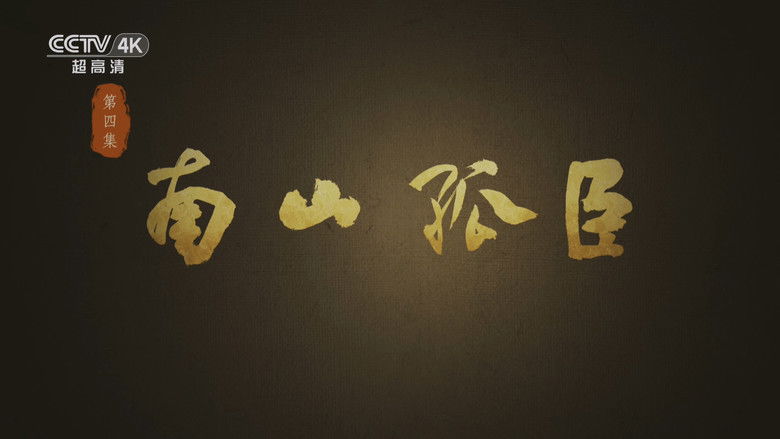 CCTV 4K
超高清
第四集
南山孤臣